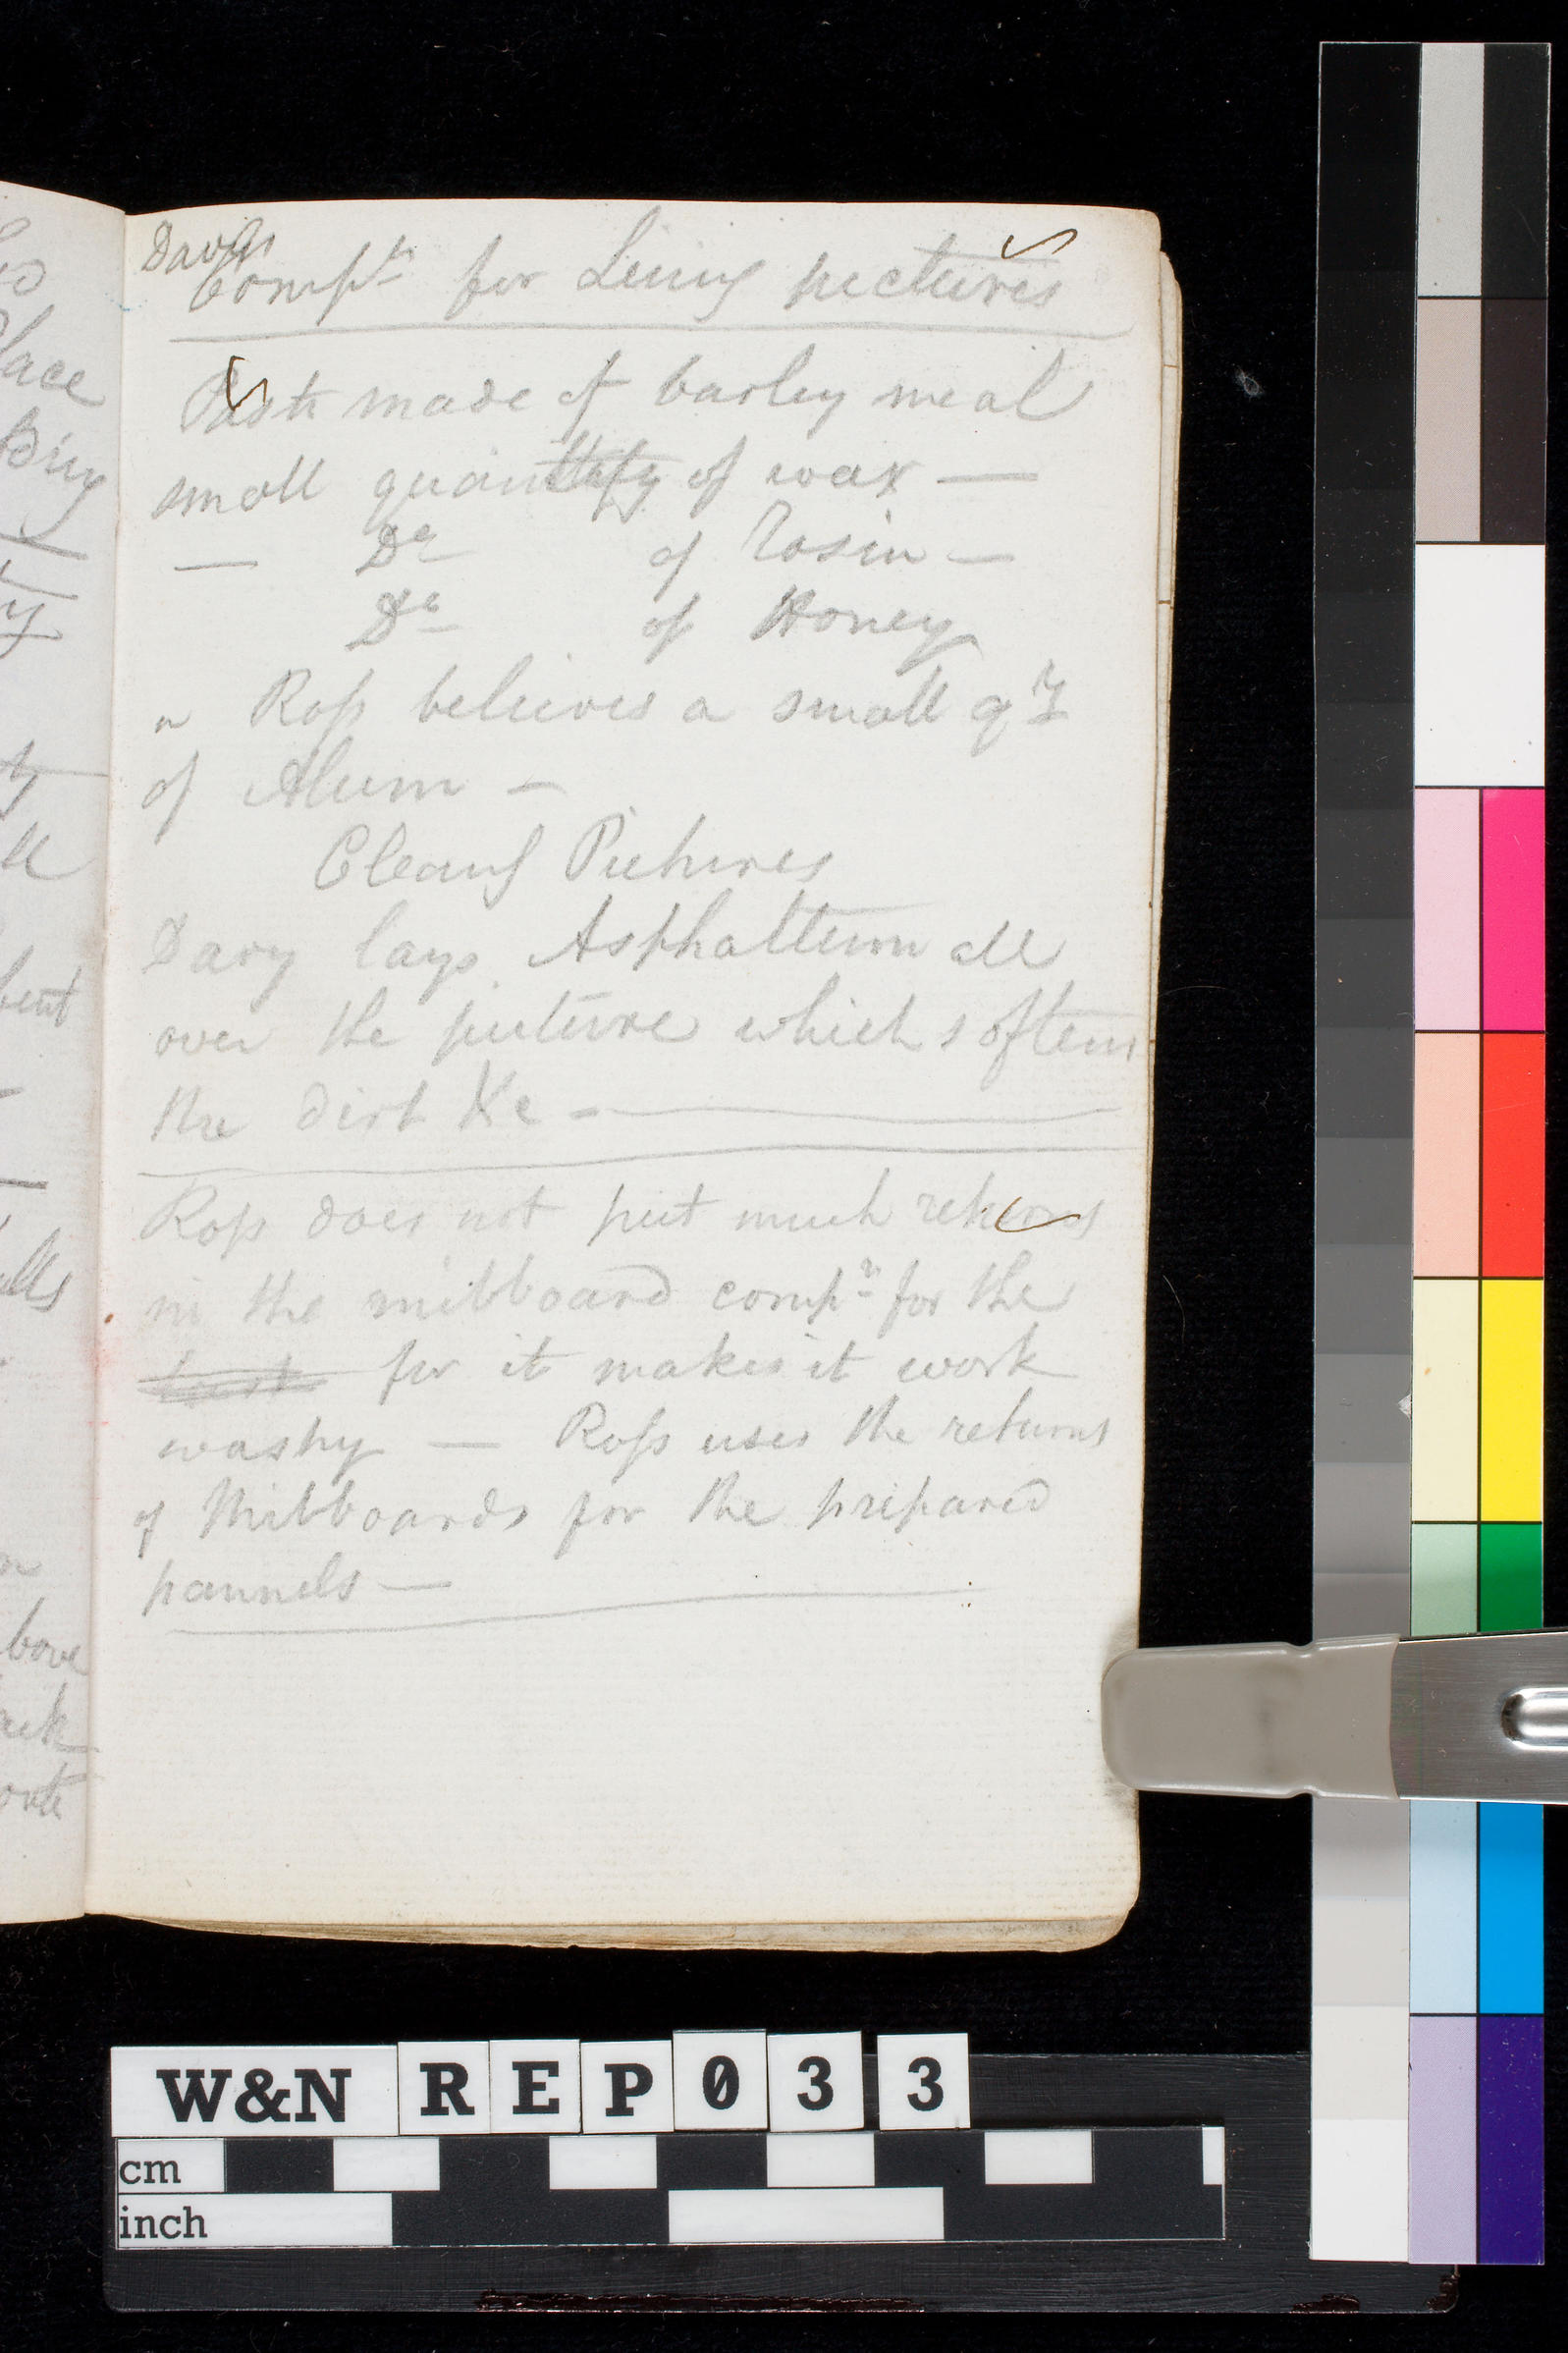 Davy's
Compn for Lining pictures
Paste made of barley meal
small quantity of wax —
— Do of Rosin —
Do of Honey
n Ross believes a small qy
of Alum —
Cleang Pictures
Davy lays Asphaltum all
over the picture which softens
the dirt &c —
Ross does not put much returns
in the millboard compn for the
for it makes it work
washy — Ross uses the returns
of Millboards for the prepared
pannels —
lace
bent
bove
W&N REP033
cm
inch